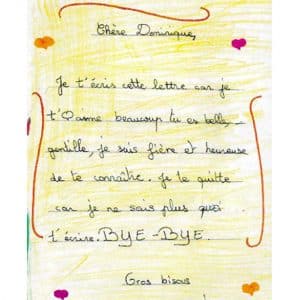 Chère Dominique,
Je t'écris cette lettre car je
t'aime beaucoup tu es belle,
gentille, je suis fière et heureuse
de te connaître. Je te quitte
car je ne sais plus quoi
t'écrire. BYE-BYE.
Gros bisous